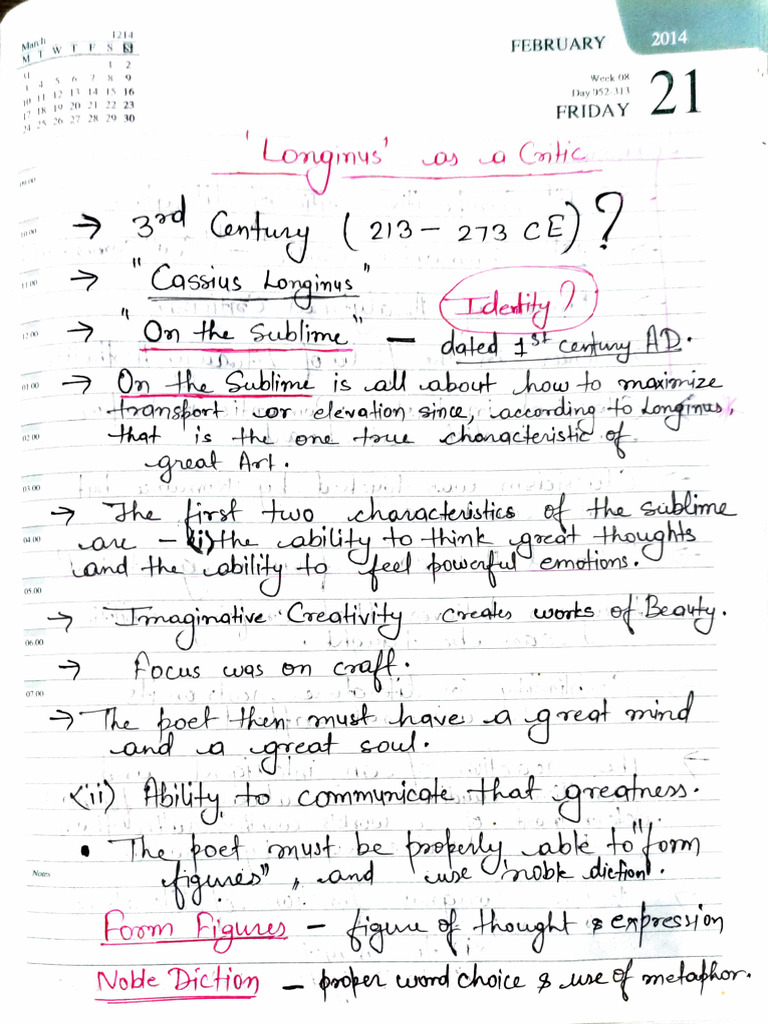 March 1214
M T W T F S S
31 1 2
3 4 5 6 7 8 9
10 11 12 13 14 15 16
17 18 19 20 21 22 23
24 25 26 27 28 29 30
FEBRUARY 2014
Week 08
Day 052-313
FRIDAY 21
'Longinus' as a Critic
09:00
→ 3rd Century (213 – 273 CE)?
10:00
→ "Cassius Longinus"
11:00
Identity?
→ "On the Sublime" – dated 1st century AD.
12:00
→ On the Sublime is all about how to maximize
01:00
transport or elevation since, according to Longinus,
that is the one true characteristic of
02:00
great Art.
03:00
→ The first two characteristics of the sublime
are – (i) the ability to think great thoughts
04:00
and the ability to feel powerful emotions.
05:00
→ Imaginative Creativity creates works of Beauty.
06:00
→ Focus was on craft.
07:00
→ The poet then must have a great mind
and a great soul.
(ii) Ability to communicate that greatness.
• The poet must be properly able to "form
figures", and use 'noble diction'.
Notes
Form Figures – figure of thought & expression
Noble Diction – proper word choice & use of metaphor.